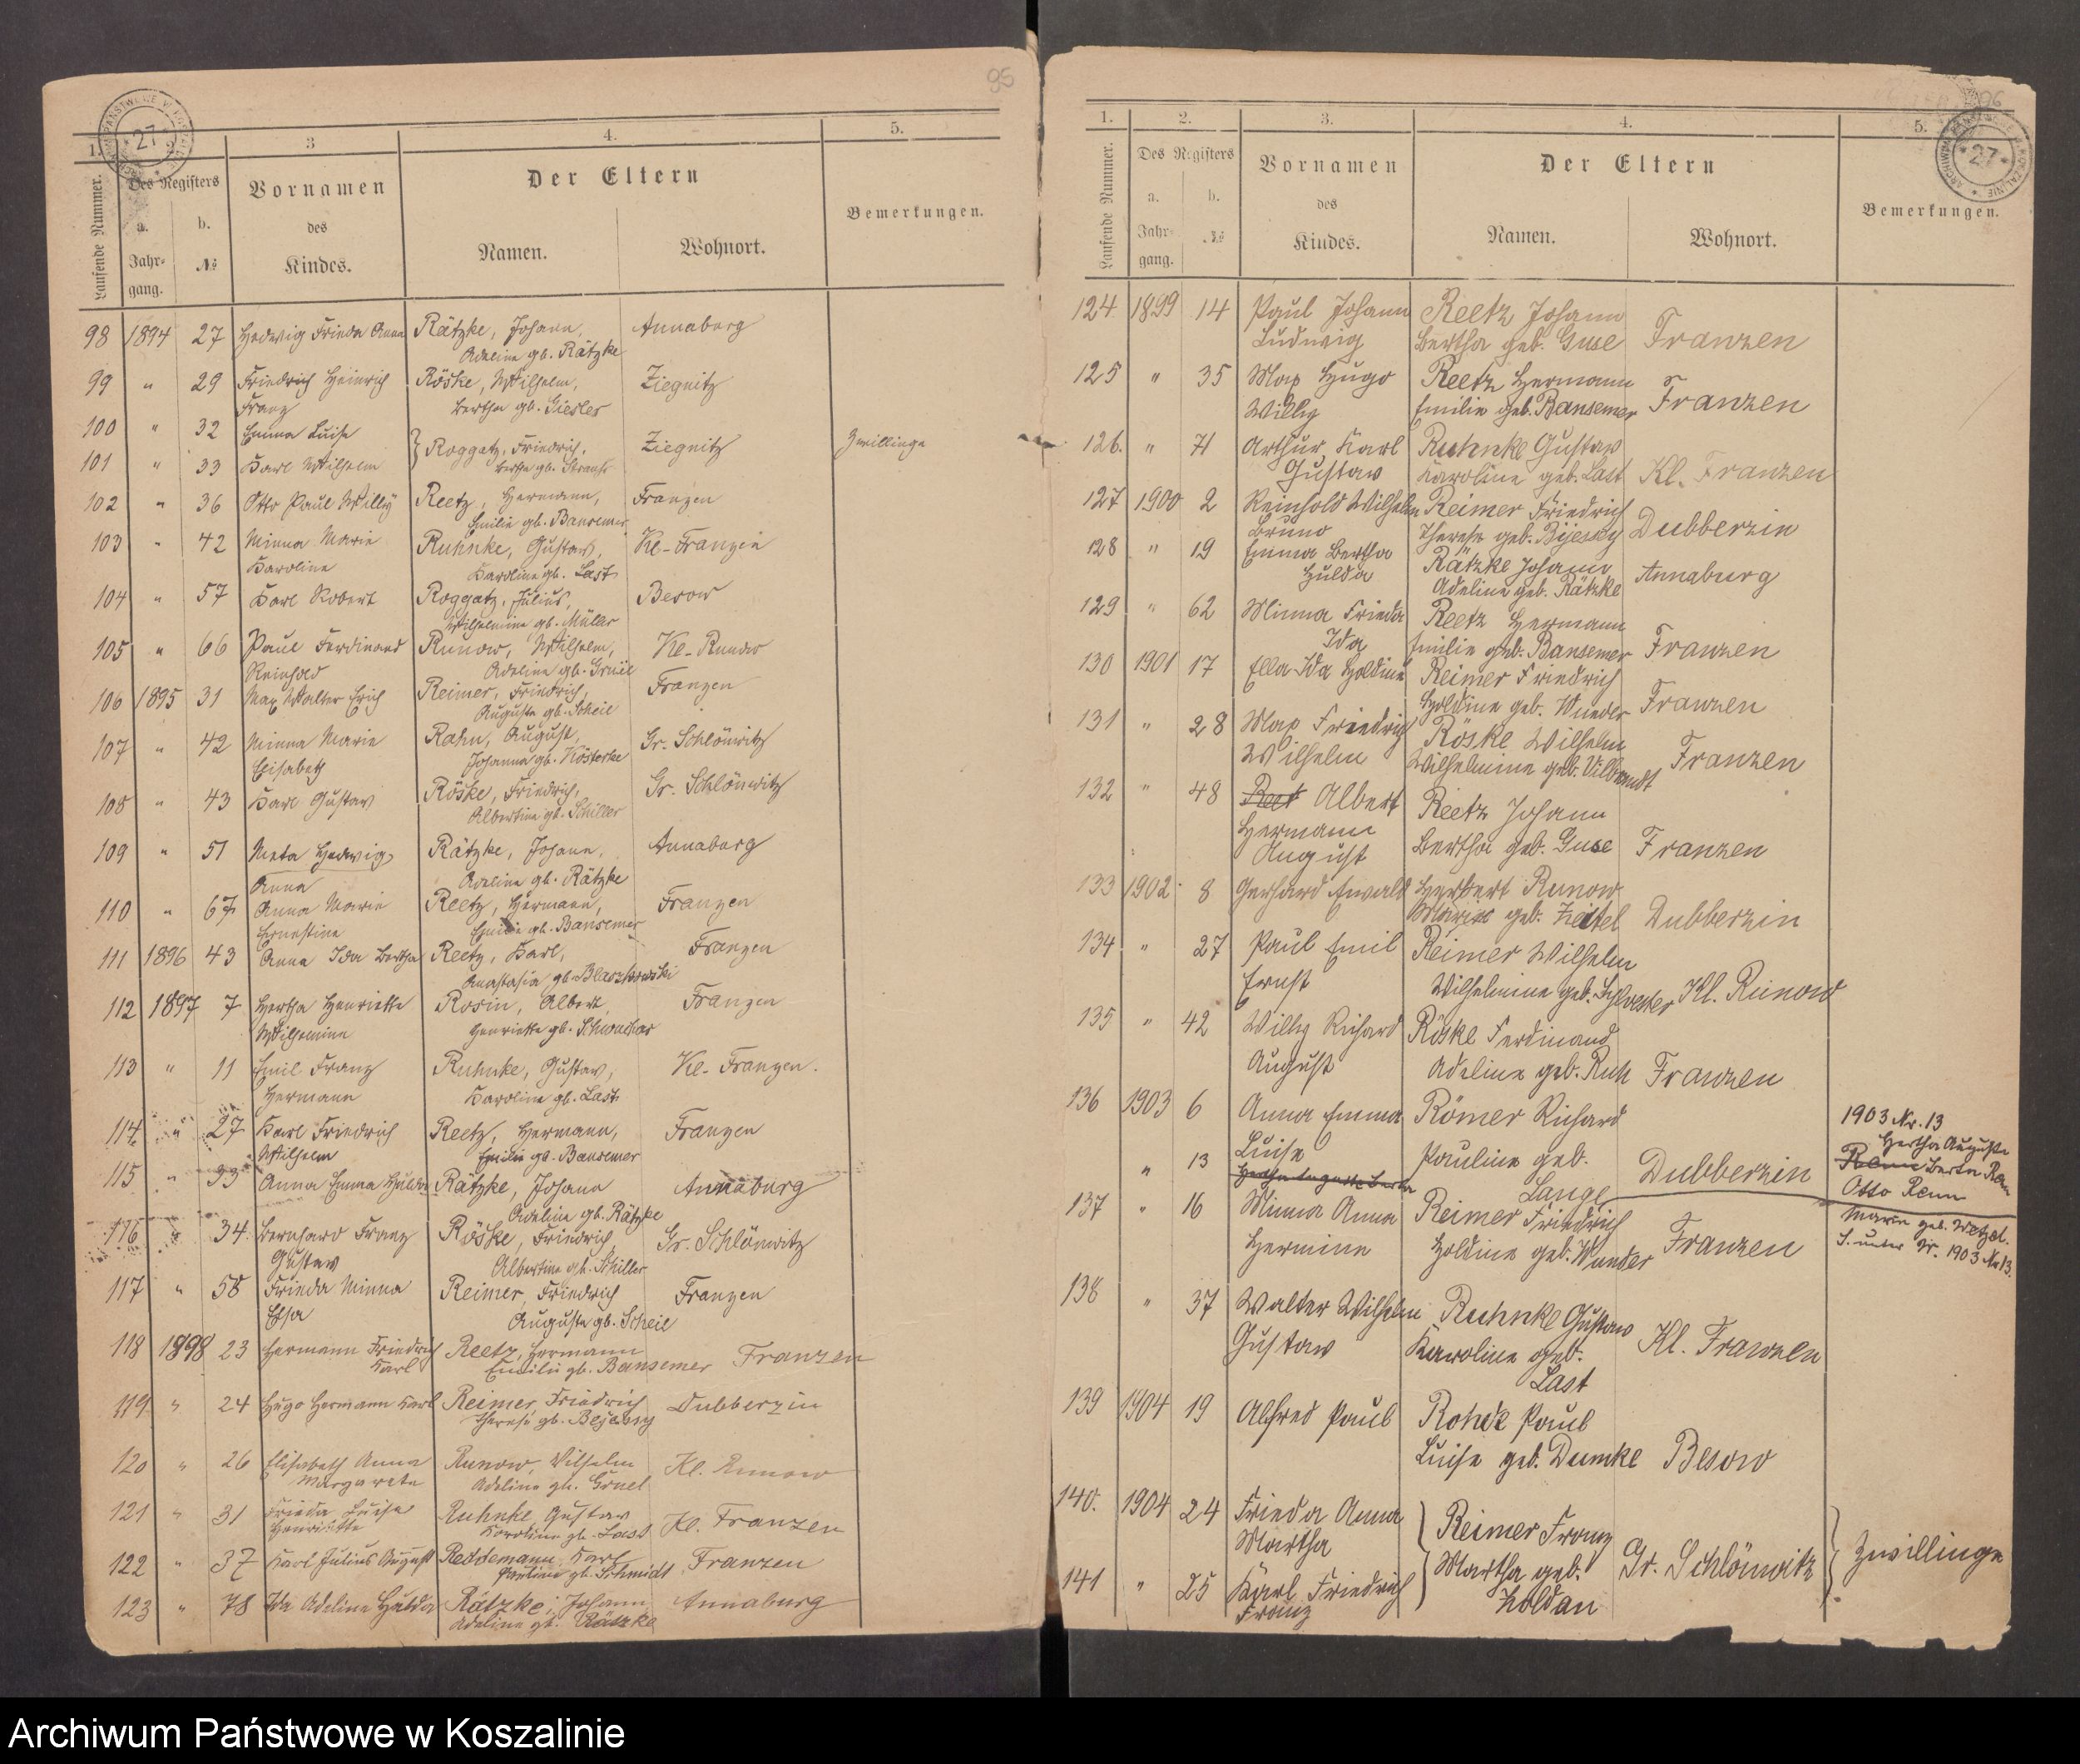 95
3
4.
5.
1.
Laufende Nummer.
Des Registers
a.
b.
Jahr-
gang.
№
Vornamen
des
Kindes.
Der Eltern
Namen.
Wohnort.
Bemerkungen.
98 1894 27 Hedwig Frieda Anna Rätzke, Johann, Annaburg
Adeline gb. Rätzke
99 " 29 Friedrich Heinrich Röske, Wilhelm, Ziegnitz
Franz Bertha gb. Giesler
100 " 32 Emma Luise
Roggatz, Friedrich, Ziegnitz Zwillinge
101 " 33 Karl Wilhelm Bertha gb. Strauß
102 " 36 Otto Paul Willy Reetz, Hermann, Franzen
Emilie gb. Bansemer
103 " 42 Minna Marie Ruhnke, Gustav, Kl-Franzen
Karoline Karoline gb. Last
104 " 57 Karl Robert Roggatz, Julius, Besow
Wilhelmine gb. Müller
105 " 66 Paul Ferdinand Runow, Wilhelm, Kl-Runow
Reinhold Adeline gb. Gruel
106 1895 31 Max Walter Erich Reimer, Friedrich, Franzen
Auguste gb. Scheil
107 " 42 Minna Marie Rahn, August, Gr. Schlönwitz
Elisabeth Johanna gb. Kösterke
108 " 43 Karl Gustav Röske, Friedrich, Gr. Schlönwitz
Albertine gb. Schiller
109 " 51 Meta Hedwig Rätzke, Johann, Annaburg
Anna Adeline gb. Rätzke
110 " 67 Anna Marie Reetz, Hermann, Franzen
Ernestine Emilie gb. Bansemer
111 1896 43 Anna Ida Bertha Reetz, Karl, Franzen
Anastasia gb. Blaschkowski
112 1897 7 Hertha Henriette Rosin, Albert, Franzen
Wilhelmine Henriette gb.
113 " 11 Emil Franz Ruhnke, Gustav, Kl-Franzen.
Hermann Karoline gb. Last
114 " 27 Karl Friedrich Reetz, Hermann, Franzen
Wilhelm Emilie gb. Bansemer
115 " 33 Anna Emma Hulda Rätzke, Johann Annaburg
Adeline gb. Rätzke
116 " 34 Bernhard Franz Röske, Friedrich Gr. Schlönwitz
Gustav Albertine gb. Schiller
117 " 58 Frieda Minna Reimer, Friedrich Franzen
Elsa Auguste gb. Scheil
118 1898 23 Hermann Friedrich Reetz, Hermann Franzen
Karl Emilie gb. Bansemer
119 " 24 Hugo Hermann Karl Reimer, Friedrich Dubberzin
Therese gb.
120 " 26 Elisabeth Anna Runow, Wilhelm Kl. Runow
Margarete Adeline gb. Gruel
121 " 31 Frieda Luise Ruhnke, Gustav Kl. Franzen
Henriette Karoline gb. Last
122 " 37 Karl Julius August Reddemann, Karl Franzen
Pauline gb. Schmidt
123 " 78 Ida Adeline Hulda Rätzke, Johann Annaburg
Adeline gb. Rätzke
96
1.
2.
3.
4.
5.
Laufende Nummer.
Des Registers
a.
b.
Jahr-
gang.
№
Vornamen
des
Kindes.
Der Eltern
Namen.
Wohnort.
Bemerkungen.
124 1899 14 Paul Johann Reetz Johann
Ludwig Bertha geb. Guse Franzen
125 " 35 Max Hugo Reetz Hermann
Willy Emilie geb. Bansemer Franzen
126. " 71 Arthur Karl Ruhnke Gustav
Gustav Karoline geb. Last Kl. Franzen
127 1900 2 Reinhold Wilhelm Reimer Friedrich
Bruno Therese geb. Dubberzin
128 " 19 Emma Bertha Rätzke Johann
Hulda Adeline geb. Rätzke Annaburg
129 " 62 Minna Frieda Reetz Hermann
Ida Emilie geb. Bansemer Franzen
130 1901 17 Ella Ida Holdine Reimer Friedrich
Holdine geb. Wunder Franzen
131 " 28 Max Friedrich Röske Wilhelm
Wilhelm Wilhelmine geb. Villbrandt Franzen
132 " 48 Albert Reetz Johann
Hermann
August Bertha geb. Guse Franzen
133 1902 8 Gerhard Ewald Herbert Runow
Marie geb. Zeitel Dubberzin
134 " 27 Paul Emil Reimer Wilhelm
Ernst Wilhelmine geb. Sylvester Kl. Runow
135 " 42 Willy Richard Röske Ferdinand
August Adeline geb. Ruh Franzen
136 1903 6 Anna Emma Römer Richard
Luise Pauline geb. Dubberzin
" 13 Hertha Auguste Berta Lange
1903 Nr. 13
Hertha Auguste
Berta Renn
Otto Renn
Marie geb. Wetzel.
S. unter Nr. 1903 Nr 13.
137 " 16 Minna Anna Reimer Friedrich
Hermine Holdine geb. Wunder Franzen
138 " 37 Walter Wilhelm Ruhnke Gustav
Gustav Karoline geb. Kl. Franzen
Last
139 1904 19 Alfred Paul Rohde Paul
Luise geb. Dumke Besow
140. 1904 24 Frieda Anna Reimer Franz
Martha
Martha geb. Gr. Schlönwitz Zwillinge
141 " 25 Karl Friedrich Holdan
Franz
Archiwum Państwowe w Koszalinie